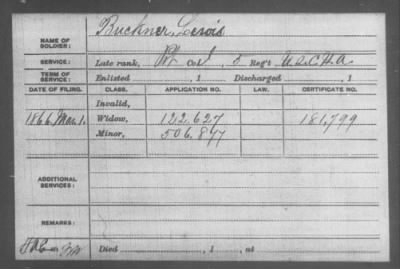 NAME OF SOLDIER: Buckner, Lewis
SERVICE: Late rank, Pvt Co. I, 5 Reg't U.S.C.H.A.
TERM OF SERVICE: Enlisted , 1 Discharged , 1
DATE OF FILING. CLASS. APPLICATION NO. LAW. CERTIFICATE NO.
Invalid,
1866 Mar. 1. Widow, 122.627 181,799
Minor, 506.877
ADDITIONAL SERVICES:
REMARKS:
Died , 1 , at